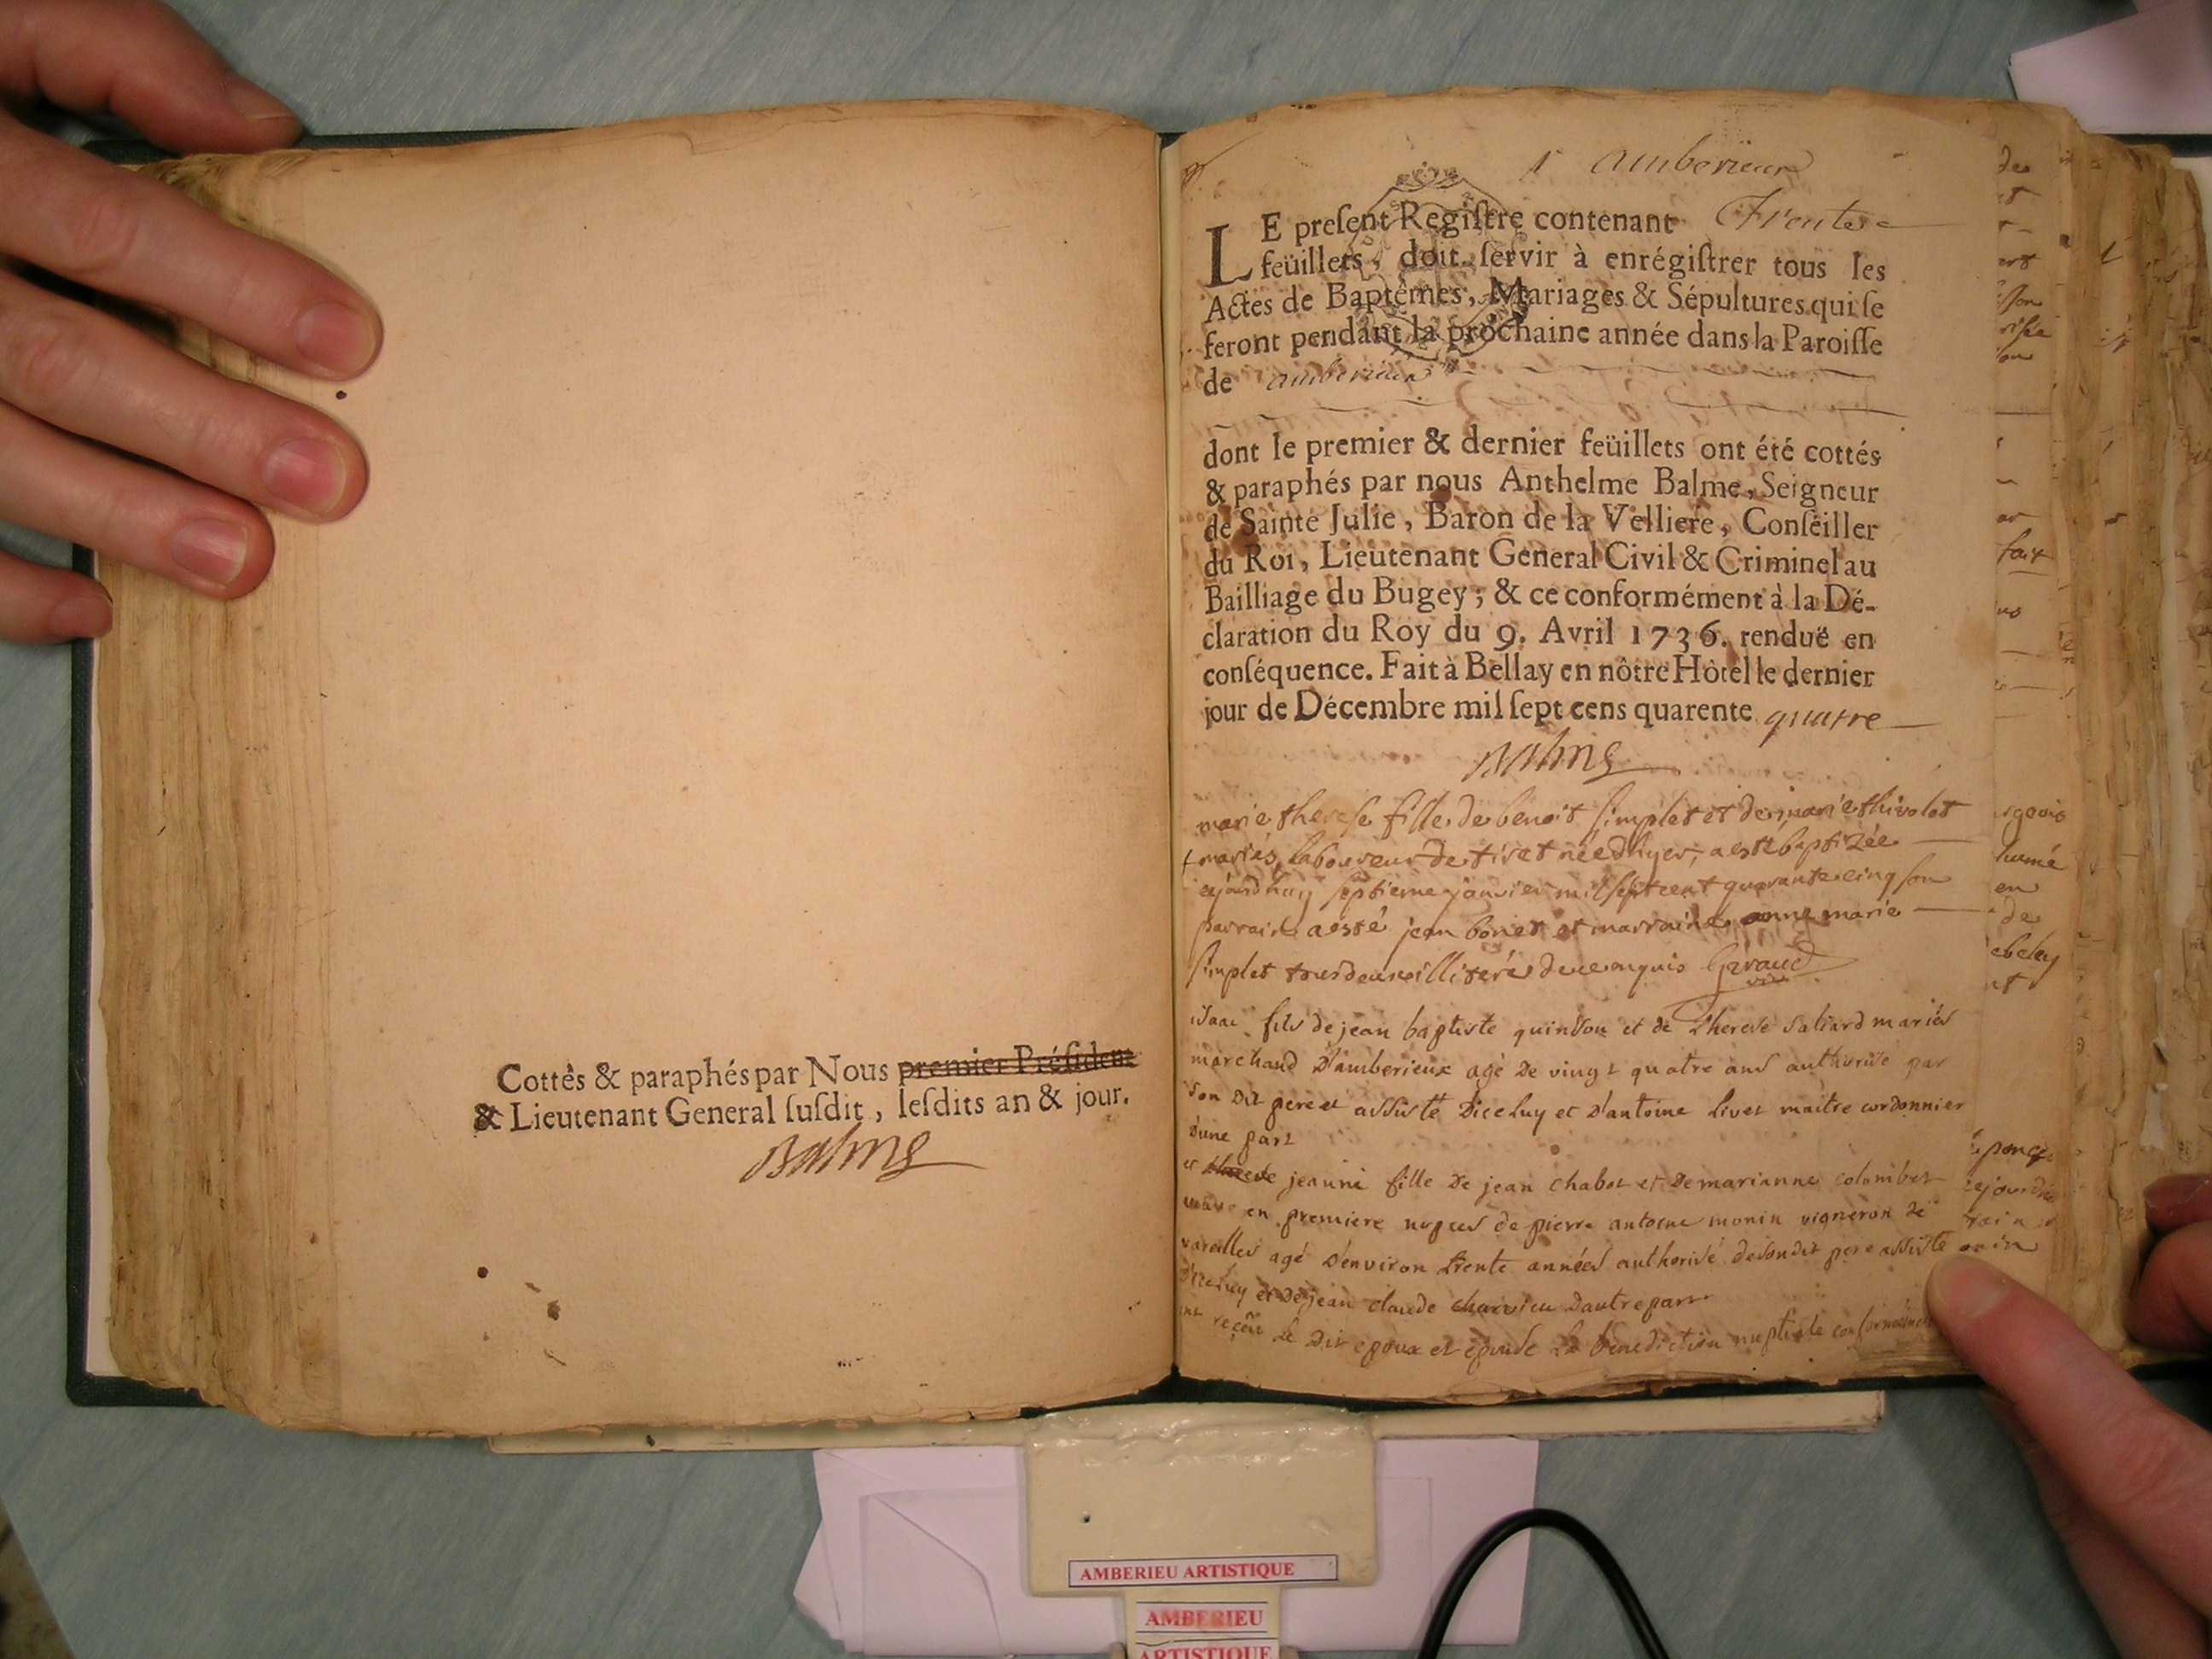 Cottés & paraphés par Nous premier Présiden
& Lieutenant General ſuſdit, leſdits an & jour.
Balme
1 amberieux
LE preſent Regiſtre contenant Trente
feüillets, doit ſervir à enrégiſtrer tous les
Actes de Baptêmes, Mariages & Sépultures qui ſe
feront pendant la prochaine année dans la Paroiſſe
de amberieux
dont le premier & dernier feüillets ont été cottés
& paraphés par nous Anthelme Balme, Seigneur
de Sainte Julie, Baron de la Velliere, Conſeiller
du Roi, Lieutenant General Civil & Criminel au
Bailliage du Bugey; & ce conformément à la Dé-
claration du Roy du 9. Avril 1736. renduë en
conſéquence. Fait à Bellay en nôtre Hôtel le dernier
jour de Décembre mil ſept cens quarente quatre
Balme
marie thereſe fille de benoit ſimplet et de marie thivolet
mariés laboureur de tiret née d'hyer, a esté baptizée
ajourd'huy ſeptieme janvier mil ſept cent quarante cinq ſon
parrain a esté jean bonet et marraine anne marie
ſimplet tous deux illiteré de ce enquis Gravaud
isaac fils de jean baptiste quinson et de therese saliard mariés
marchand d'amberieux agé de vingt quatre ans authorisé par
son dit pere et assisté diceluy et d'antoine livet maitre cordonnier
d'une part
et therese jeanne fille de jean chabot et de marianne colombet
veuve en premiere nopces de pierre antoine monin vigneron de
vareilles agé d'environ trente années authorisé de son dit pere assisté
d'iceluy et de jean claude charvieu d'autre part
ont reçeu le dit epoux et epouse la benediction nuptiale conformement
de
fait
humé
en
de
AMBERIEU ARTISTIQUE
AMBERIEU
ARTISTIQUE